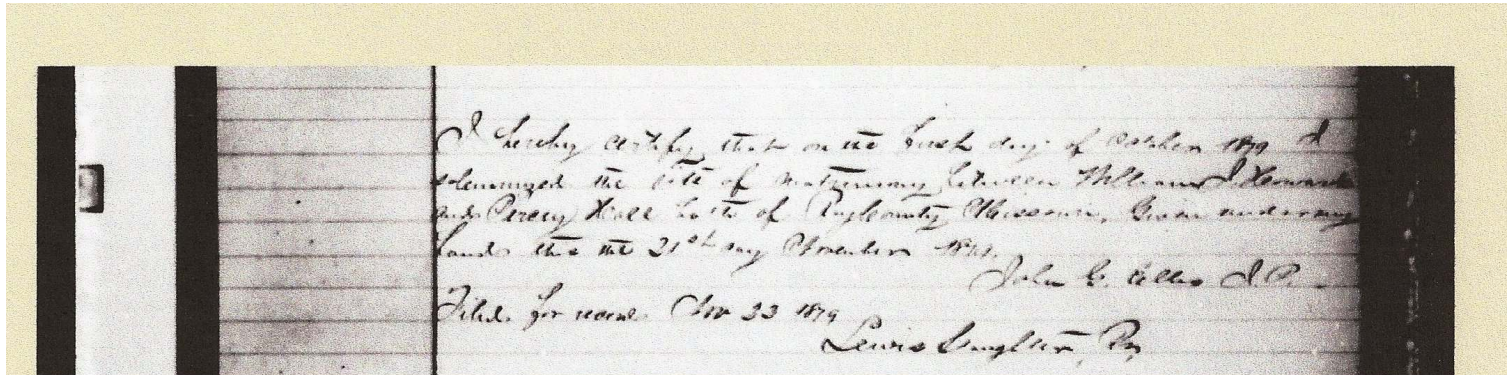 I hereby certify that on the first day of October 1879 I
solemnized the rite of matrimony between William J Howard
and Percy Hall both of County Missouri, Given under my
hand this the 21st day November 1879.
John C. Ellis J.P.
Filed for record Nov 22 1879
Lewis